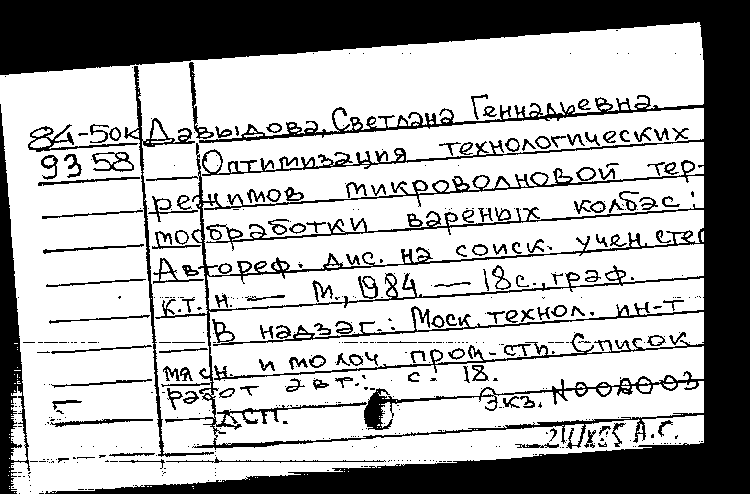 84-50к Давыдова, Светлана Геннадьевна.
9358 Оптимизация технологических
режимов микроволновой тер-
мообработки вареных колбас:
Автореф. дис. на соиск. учен. степ
к.т.н. — М., 1984. — 18 с., граф.
В надзаг.: Моск. технол. ин-т
мясн. и молоч. пром-сти. Список
работ авт.: с. 18.
ДСП. Экз. N000003
24/IX85 А.Г.